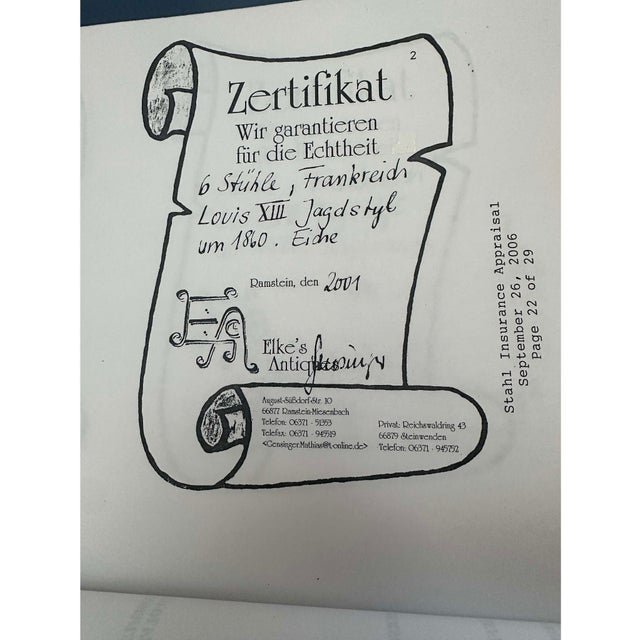 2
Zertifikat
Wir garantieren
für die Echtheit
6 Stühle, Frankreich
Louis XIII Jagdstyl
um 1860. Eiche
Ramstein, den 2001
Elke's
Antiques
August-Süßdorf-Str. 10
66877 Ramstein-Miesenbach
Telefon: 06371 - 51353
Telefax: 06371 - 945519
<Gensinger.Mathias@t-online.de>
Privat: Reichswaldring 43
66879 Steinwenden
Telefon: 06371 - 945752
Stahl Insurance Appraisal
September 26, 2006
Page 22 of 29